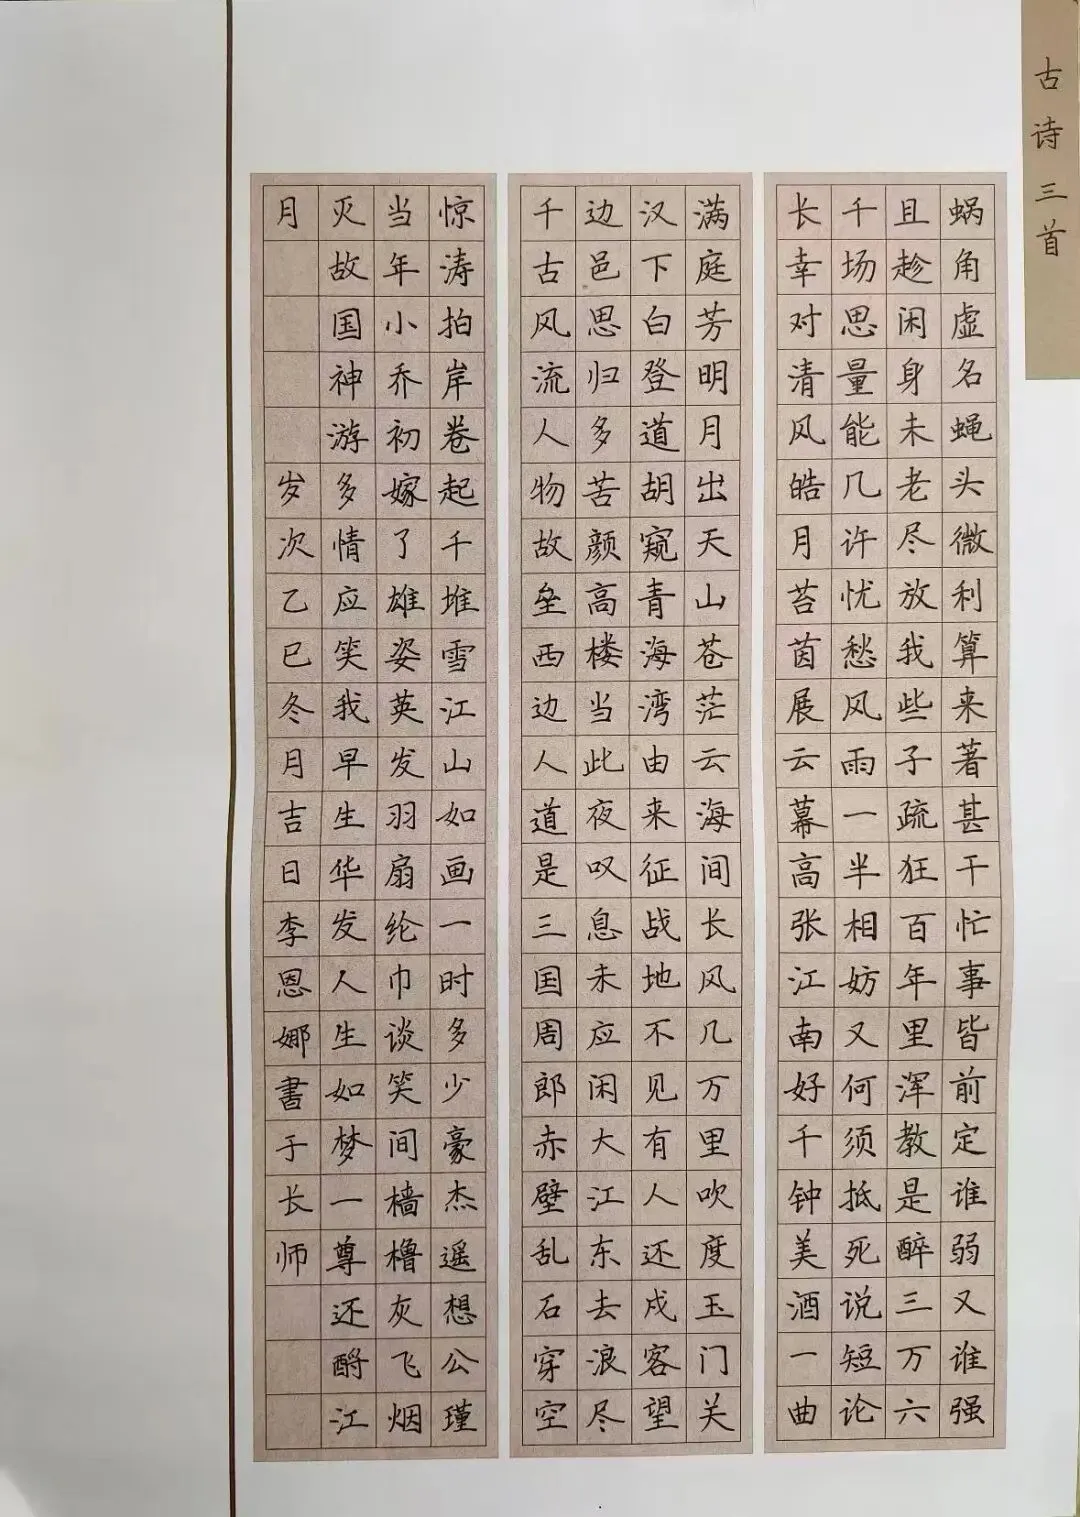 古诗三首
蜗角虚名蝇头微利算来著甚干忙事皆前定谁弱又谁强
且趁闲身未老尽放我些子疏狂百年里浑教是醉三万六
千场思量能几许忧愁风雨一半相妨又何须抵死说短论
长幸对清风皓月苔茵展云幕高张江南好千钟美酒一曲
满庭芳明月出天山苍茫云海间长风几万里吹度玉门关
汉下白登道胡窥青海湾由来征战地不见有人还戍客望
边邑思归多苦颜高楼当此夜叹息未应闲大江东去浪尽
千古风流人物故垒西边人道是三国周郎赤壁乱石穿空
惊涛拍岸卷起千堆雪江山如画一时多少豪杰遥想公瑾
当年小乔初嫁了雄姿英发羽扇纶巾谈笑间樯橹灰飞烟
灭故国神游多情应笑我早生华发人生如梦一尊还酹江
月 岁次乙巳冬月吉日李恩娜書于长师